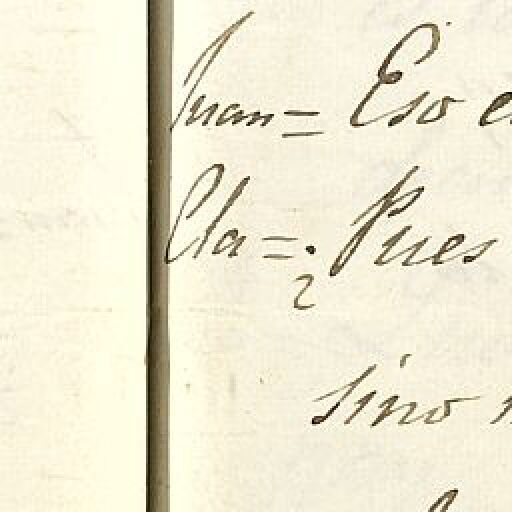 Juan= Eso e
Cla=¿Pues
sino